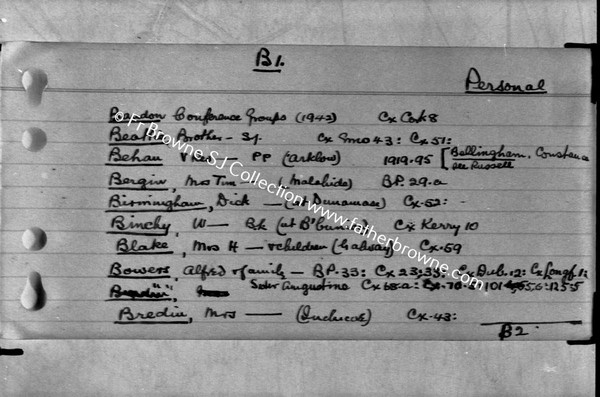 B1.
Personal
Bandon Conference Groups (1943) Cx Cork 8
Beattie Brother - SJ. Cx Emo 43: Cx 51:
Behan V Rev - PP (Arklow) 1919.95 [Bellingham, Constance
see Russell
Bergin, Mrs Tim - (Malahide) BP. 29.a
Birmingham, Dick - (at Dunamase) Cx-52: -
Binchy, W - Bk Cx Kerry 10
Blake, Mrs H - & children (Galway) Cx-59
Bowers, Alfred & family - BP.33: Cx 23:33: Cx Dub. 12: Cx Longf. 11
Sister Augustine Cx 68.a:
Bredin, Mrs - Cx-43:
B2.
© Fr Browne SJ Collection www.fatherbrowne.com